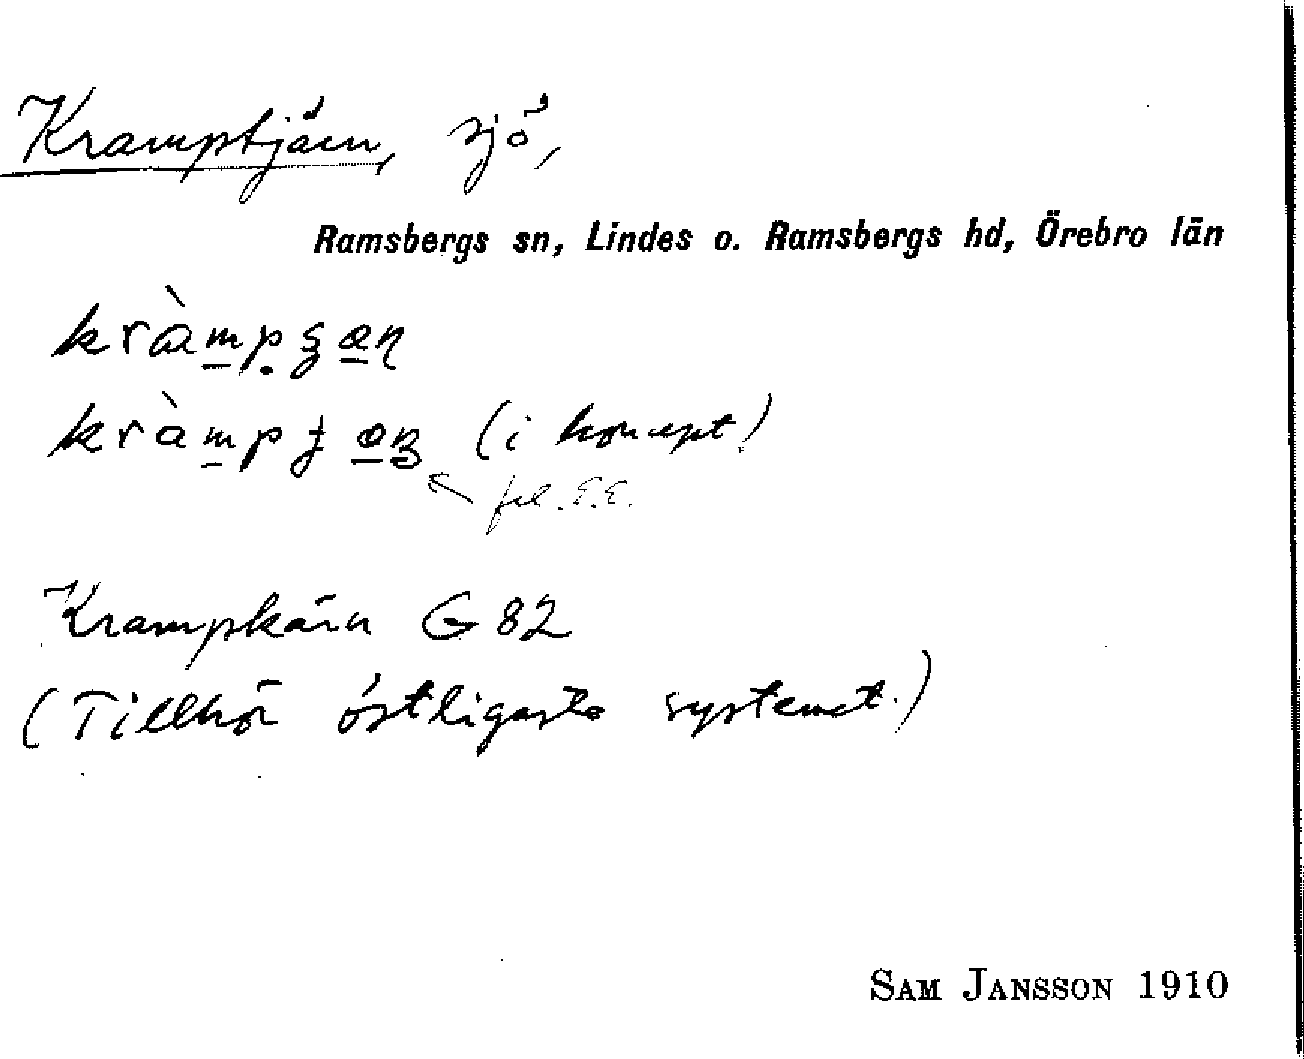 Kramptjärn, sjö,
Ramsbergs sn, Lindes o. Ramsbergs hd, Örebro län
(i koncept)
fel. E.E.
Krampkärn G 82
(Tillhör östligaste systemet.)
SAM JANSSON 1910